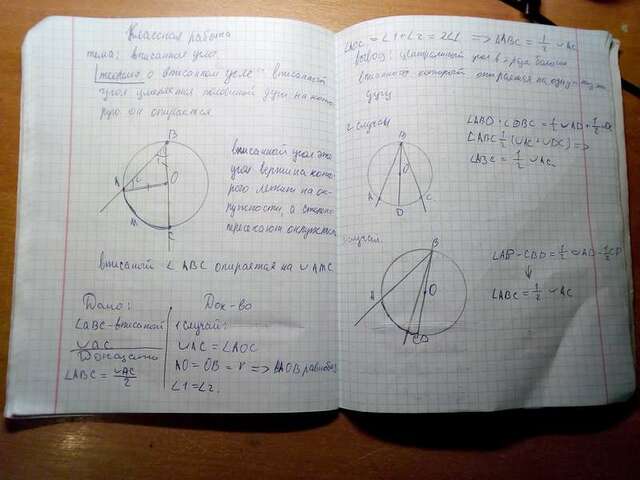 Классная работа
тема: вписанный угол
Теорема о вписанном угле - вписанный
угол измеряется половиной дуги на кото
рую он опирается.
B
A
O
M
C
вписанный угол это
угол вершина кото
рого лежит на ок-
ружности, а стороны
пересекают окружность
вписаный ∠ ABC опирается на ∪ AMC
Дано:
∠ABC - вписаный
∪ AC
Доказать
∠ABC = ∪AC/2
Док-во
1 случай:
∪AC = ∠AOC
AO = OB = r => ΔAOB равноб.
∠1 = ∠2.
∠AOC = ∠1 + ∠2 = 2∠1 => ∠ABC = 1/2 ∪ AC
вывод: центральный угол в 2 раза больше
вписанного который опирается на одну и ту же
дугу
2 случай
B
O
A
D
C
∠ABD + ∠DBC = 1/2 ∪AD + 1/2 ∪DC
∠ABC 1/2 (∪AC + ∪DC) =>
∠ABC = 1/2 ∪ AC
случай
B
A
O
C D
∠ABD - ∠CBD = 1/2 ∪AD - 1/2 CD
∠ABC = 1/2 ∪ AC